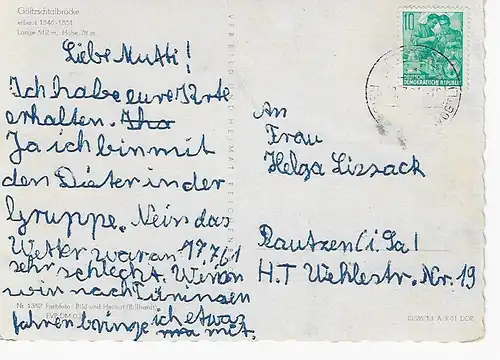 Göltzschtalbrücke
erbaut 1846-1851
Länge 512 m, Höhe 78 m
Liebe Mutti!
Ich habe eure Karte
erhalten.
Ja ich bin mit
dem Dieter in der
Gruppe. Nein das
Wetter war am 17.7.61
sehr schlecht. Wenn
wir nach Türingen
fahren bringe ich etwas
mit.
Nr. 1382 Farbfoto: Bild und Heimat
10
DEUTSCHE
DEMOKRATISCHE REPUBLIK
An
Frau
Helga Lissack
Bautzen (i. Sa)
H.T Wehlestr. Nr. 19
A 3/61 DDR